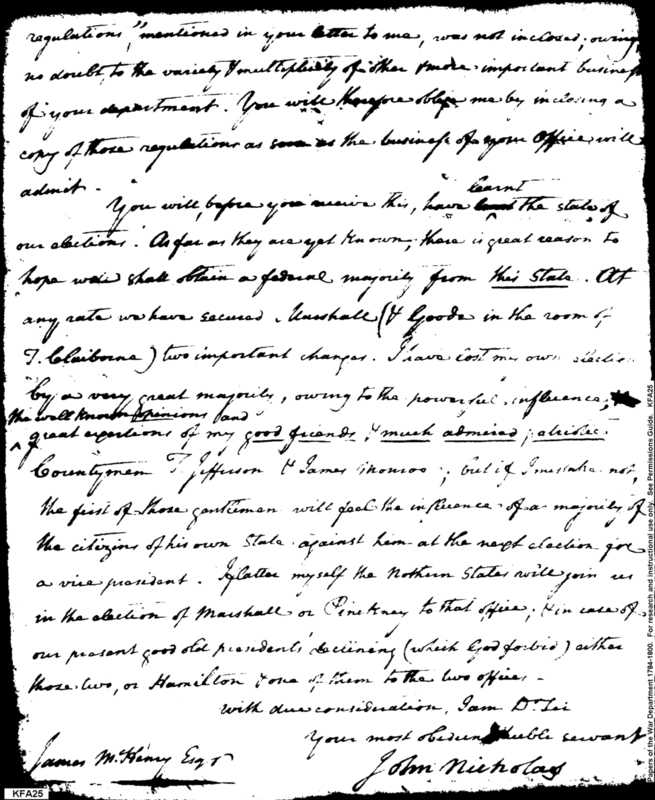 regulations," mentioned in your letter to me, was not inclosed; owing,
no doubt, to the variety & multiplicity of other & more important business
of your department. You will therefore oblige me by inclosing a
copy of those regulations as soon as the business of your Office will
admit.
You will, before you receive this, have learnt the state of
our elections. As far as they are yet known, there is great reason to
hope we shall obtain a federal majority from this State. At
any rate we have secured Marshall (& Goode in the room of
T. Claiborne) two important changes. I have lost my own election
by a very great majority, owing to the powerful influence,
the well known opinions and
great exertions of my good friends, & much admired patriotic
Countymen T. Jefferson & James Monroe; but if I mistake not,
the first of those gentlemen will feel the influence of a majority of
the citizens of his own State against him at the next election for
a vice president. I flatter myself the Nothern States will join us
in the election of Marshall or Pinckney to that office, & in case of
our present good old presidents declining (which God forbid) either
those two, or Hamilton & one of them to the two offices.
With due consideration, I am Dr Sir
Your most obedient humble servant
James McHenry Esqr
John Nicholas
KFA25
Papers of the War Department 1784-1800. For research and instructional use only. See Permissions Guide. KFA25